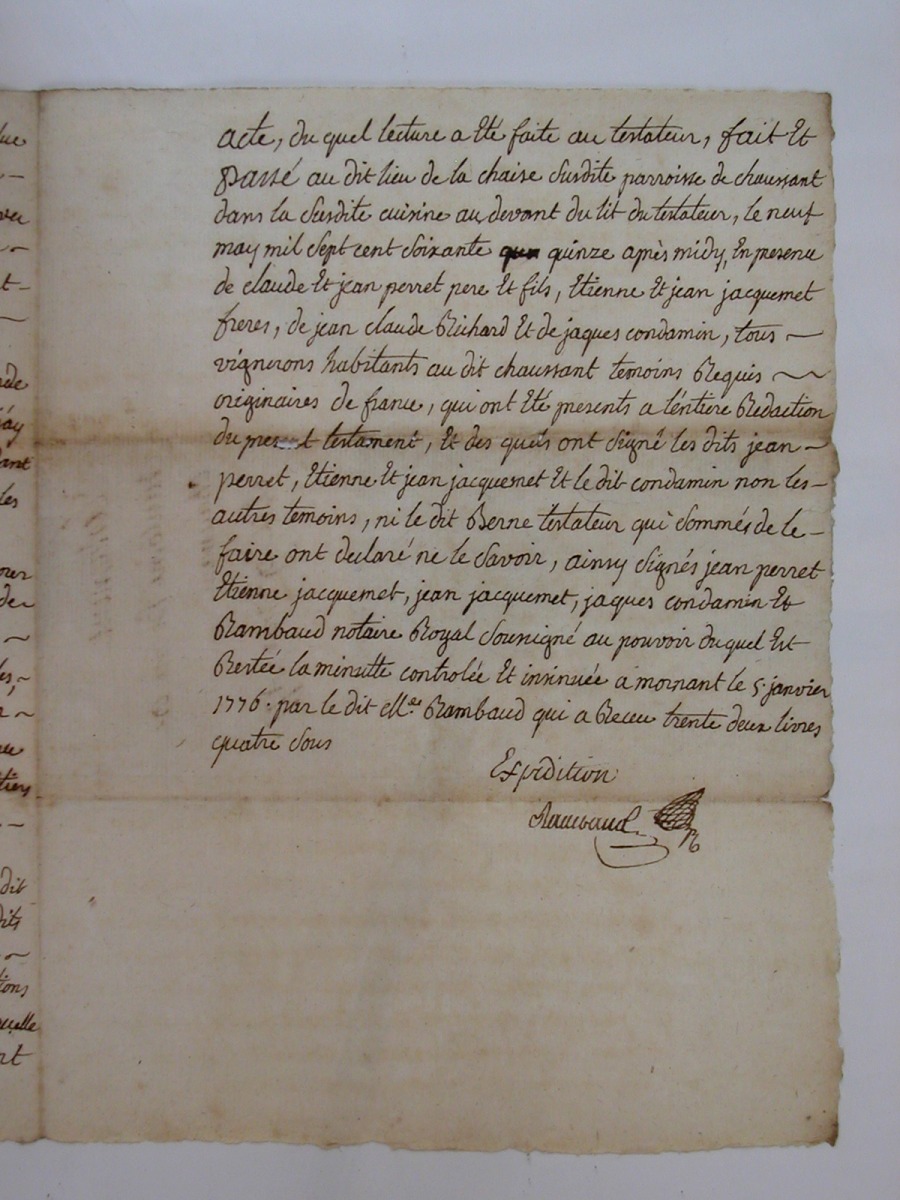 acte, du quel lecture a Eté faite au testateur, fait Et
Passé au dit lieu de la chaise Susdite parroisse de chaussant
dans la Susdite cuisine au devant du lit du testateur, le neuf
may mil Sept cent Soixante quinze après midy, En presence
de claude Et jean perret pere Et fils, Etienne Et jean jacquemet
freres, de jean claude Richard Et de jaques condamin, tous ~
vignerons habitants au dit chaussant temoins Requis ~~
originaires de france, qui ont Eté presents a l'entiere Redaction
du present testament, Et des quels ont Signé les dits jean ~
perret, Etienne Et jean jacquemet Et le dit condamin non les -
autres temoins, ni le dit Berne testateur qui Sommés de le -
faire ont declaré ne le Savoir, ainsy Signés jean perret
Etienne jacquemet, jean jacquemet, jaques condamin Et
Rambaud notaire Royal Soussigné au pouvoir du quel Est
Restée la minutte controlée Et insinuée a mornant le 5 janvier
1776. par le dit Me Rambaud qui a Receu trente deux livres
quatre Sous
Expedition
Rambaud